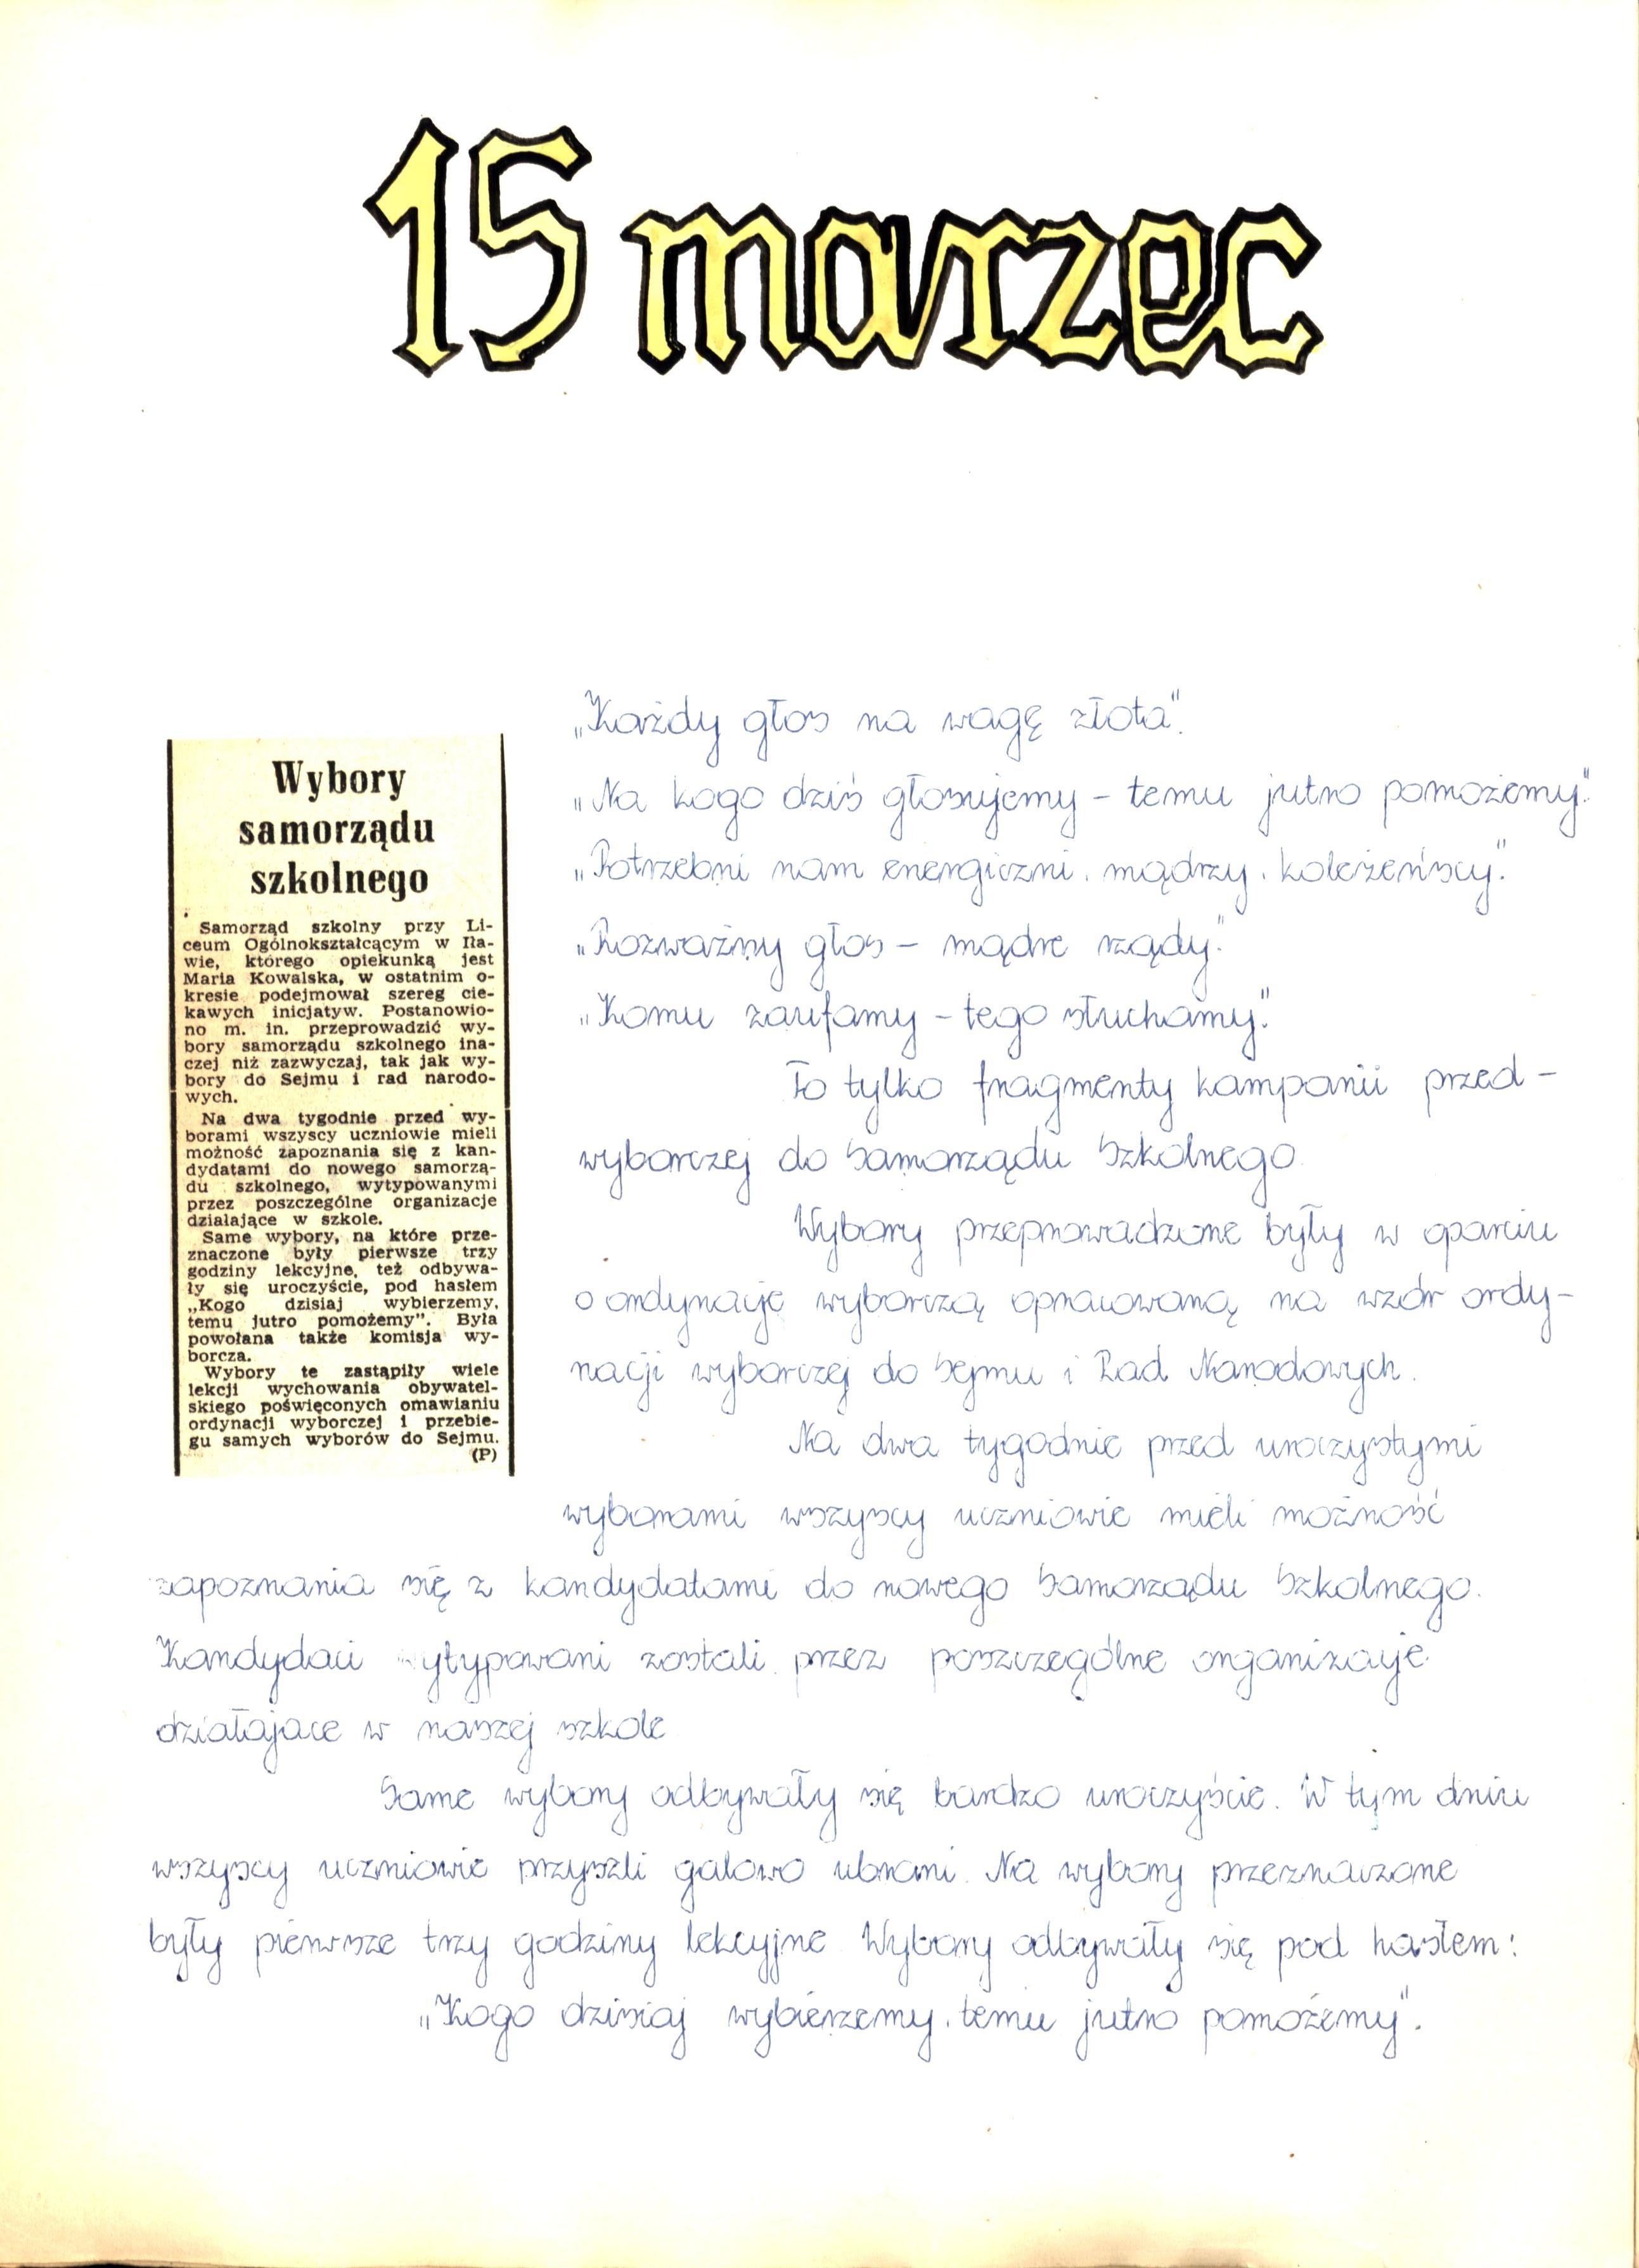 15 marzec
Wybory
samorządu
szkolnego
Samorząd szkolny przy Li-
ceum Ogólnokształcącym w Iła-
wie, którego opiekunką jest
Maria Kowalska, w ostatnim o-
kresie podejmował szereg cie-
kawych inicjatyw. Postanowio-
no m. in. przeprowadzić wy-
bory samorządu szkolnego ina-
czej niż zazwyczaj, tak jak wy-
bory do Sejmu i rad narodo-
wych.
Na dwa tygodnie przed wy-
borami wszyscy uczniowie mieli
możność zapoznania się z kan-
dydatami do nowego samorzą-
du szkolnego, wytypowanymi
przez poszczególne organizacje
działające w szkole.
Same wybory, na które prze-
znaczone były pierwsze trzy
godziny lekcyjne, też odbywa-
ły się uroczyście, pod hasłem
„Kogo dzisiaj wybierzemy,
temu jutro pomożemy". Była
powołana także komisja wy-
borcza.
Wybory te zastąpiły wiele
lekcji wychowania obywatel-
skiego poświęconych omawianiu
ordynacji wyborczej i przebie-
gu samych wyborów do Sejmu.
(P)
„Każdy głos na wagę złota".
„Na kogo dziś głosujemy – temu jutro pomożemy."
„Potrzebni nam energiczni, mądrzy, koleżeńscy."
„Rozważny głos – mądre rządy."
„Komu zaufamy – tego słuchamy."
To tylko fragmenty kampanii przed-
wyborczej do Samorządu Szkolnego.
Wybory przeprowadzone były w oparciu
o ordynację wyborczą opracowaną na wzór ordy-
nacji wyborczej do Sejmu i Rad Narodowych.
Na dwa tygodnie przed uroczystymi
wyborami wszyscy uczniowie mieli możność
zapoznania się z kandydatami do nowego Samorządu Szkolnego.
Kandydaci wytypowani zostali przez poszczególne organizacje
działajace w naszej szkole
Same wybory odbywały się bardzo uroczyście. W tym dniu
wszyscy uczniowie przyszli galowo ubrani. Na wybory przeznaczone
były pierwsze trzy godziny lekcyjne. Wybory odbywały się pod hasłem:
„Kogo dzisiaj wybierzemy, temu jutro pomożemy".